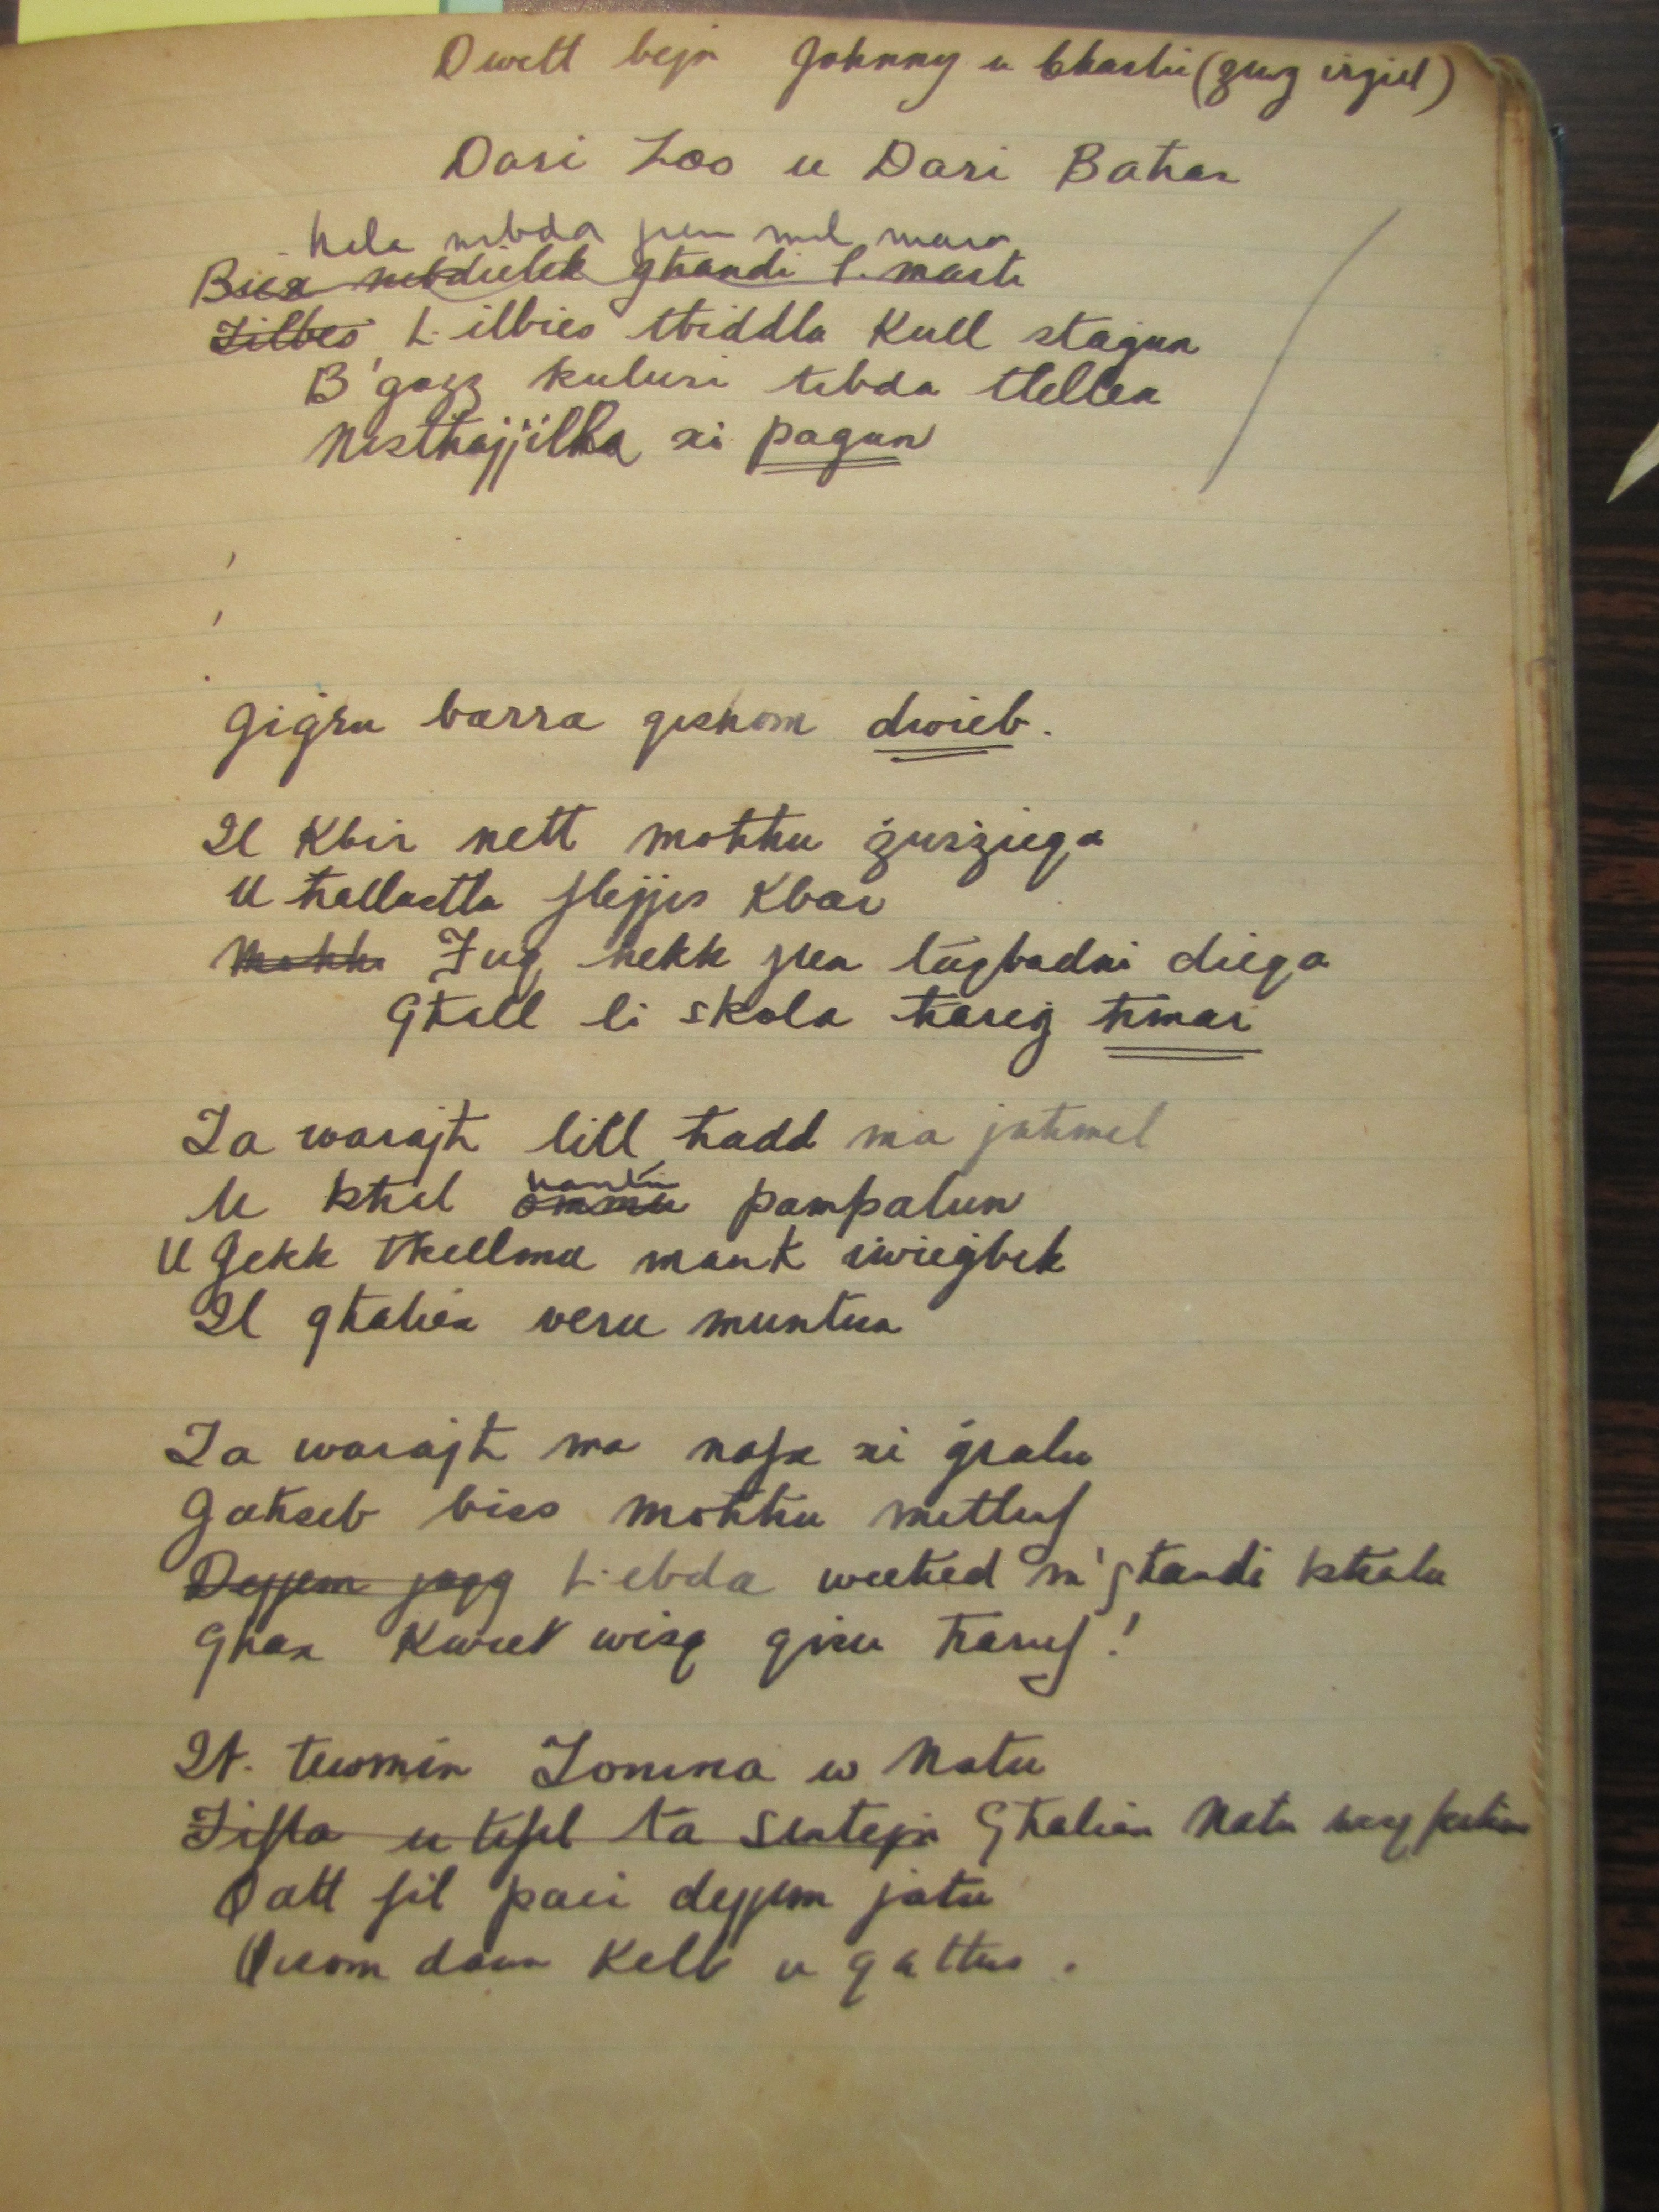 Dwett bejn Johnny u Charlie (żewġ irġiel)
Dari Zoo u Dari Baħar
Ħela nibda jien mil mara
Biex nibdielek għandi l-marti
Tilbes L-ilbies tbiddla kull staġun
B'gozz kuluri tibda tlellex
Nistħajjilha xi pagun
Jiġru barra qishom dwieb.
Il kbir nett moħħu żurżieqa
U ħallaitla flejjes kbar
Moħħ Fuq hekk jien tiġbadni dieqa
Għall li skola ħareġ ħmar
Ta warajħ lill ħadd ma jaħmel
U ktal ommu pampalun
U Jekk tkellmu mank iwieġbek
Il għaliex veru muntun
Ta warajħ ma nafx xi ġralu
Jaħseb biss moħħu mitluf
Dejjem jagħ L-ebda wieħed m'għandi bħalu
Għax kwiet wisq qisu ħaruf!
It-tewmin Zonina w Natu
Tifla u tifel ta sentejn Għaliex Natu
Qatt fil paci dejjem jatu
Qishom daun kelb u qattus.